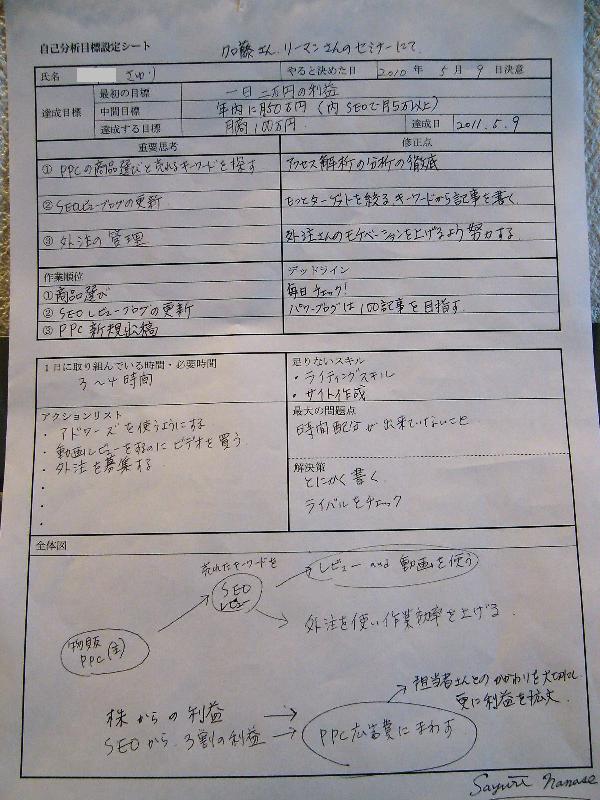 自己分析目標設定シート
加藤さん、リーマンさんのセミナーにて
氏名 さゆり やると決めた日 2010 年 5 月 9 日決意
達成目標
最初の目標 一日 二万円の利益
中間目標 年内に月50万円 (内SEOで月5万以上)
達成する目標 月商100万円 達成日 2011.5.9
重要思考 修正点
① PPCの商品選びと売れるキーワードを探す アクセス解析の分析の徹底
② SEOレビューブログの更新 もっとターゲットを絞るキーワードから記事を書く
③ 外注の管理 外注さんのモチベーションを上げるよう努力する
作業順位 デッドライン
① 商品選び 毎日チェック!
② SEOレビューブログの更新 パワーブログは100記事を目指す
③ PPC新規出稿
1日に取り組んでいる時間・必要時間 足りないスキル
3〜4時間 ・ライティングスキル
・サイト作成
アクションリスト 最大の問題点
・アドワーズを使うようにする 時間配分が出来ていないこと
・動画レビューを撮るのにビデオを買う
・外注を募集する 解決策
・ とにかく書く
・ ライバルをチェック
・
・
全体図
売れたキーワードを
SEO
レビュー
レビュー and 動画を使う
外注を使い作業効率を上げる
物販
PPC(主)
担当者さんとのかかわりを大切にし
更に利益を拡大
株からの利益
SEOから3割の利益
PPC広告費にまわす
Sayuri Nanase